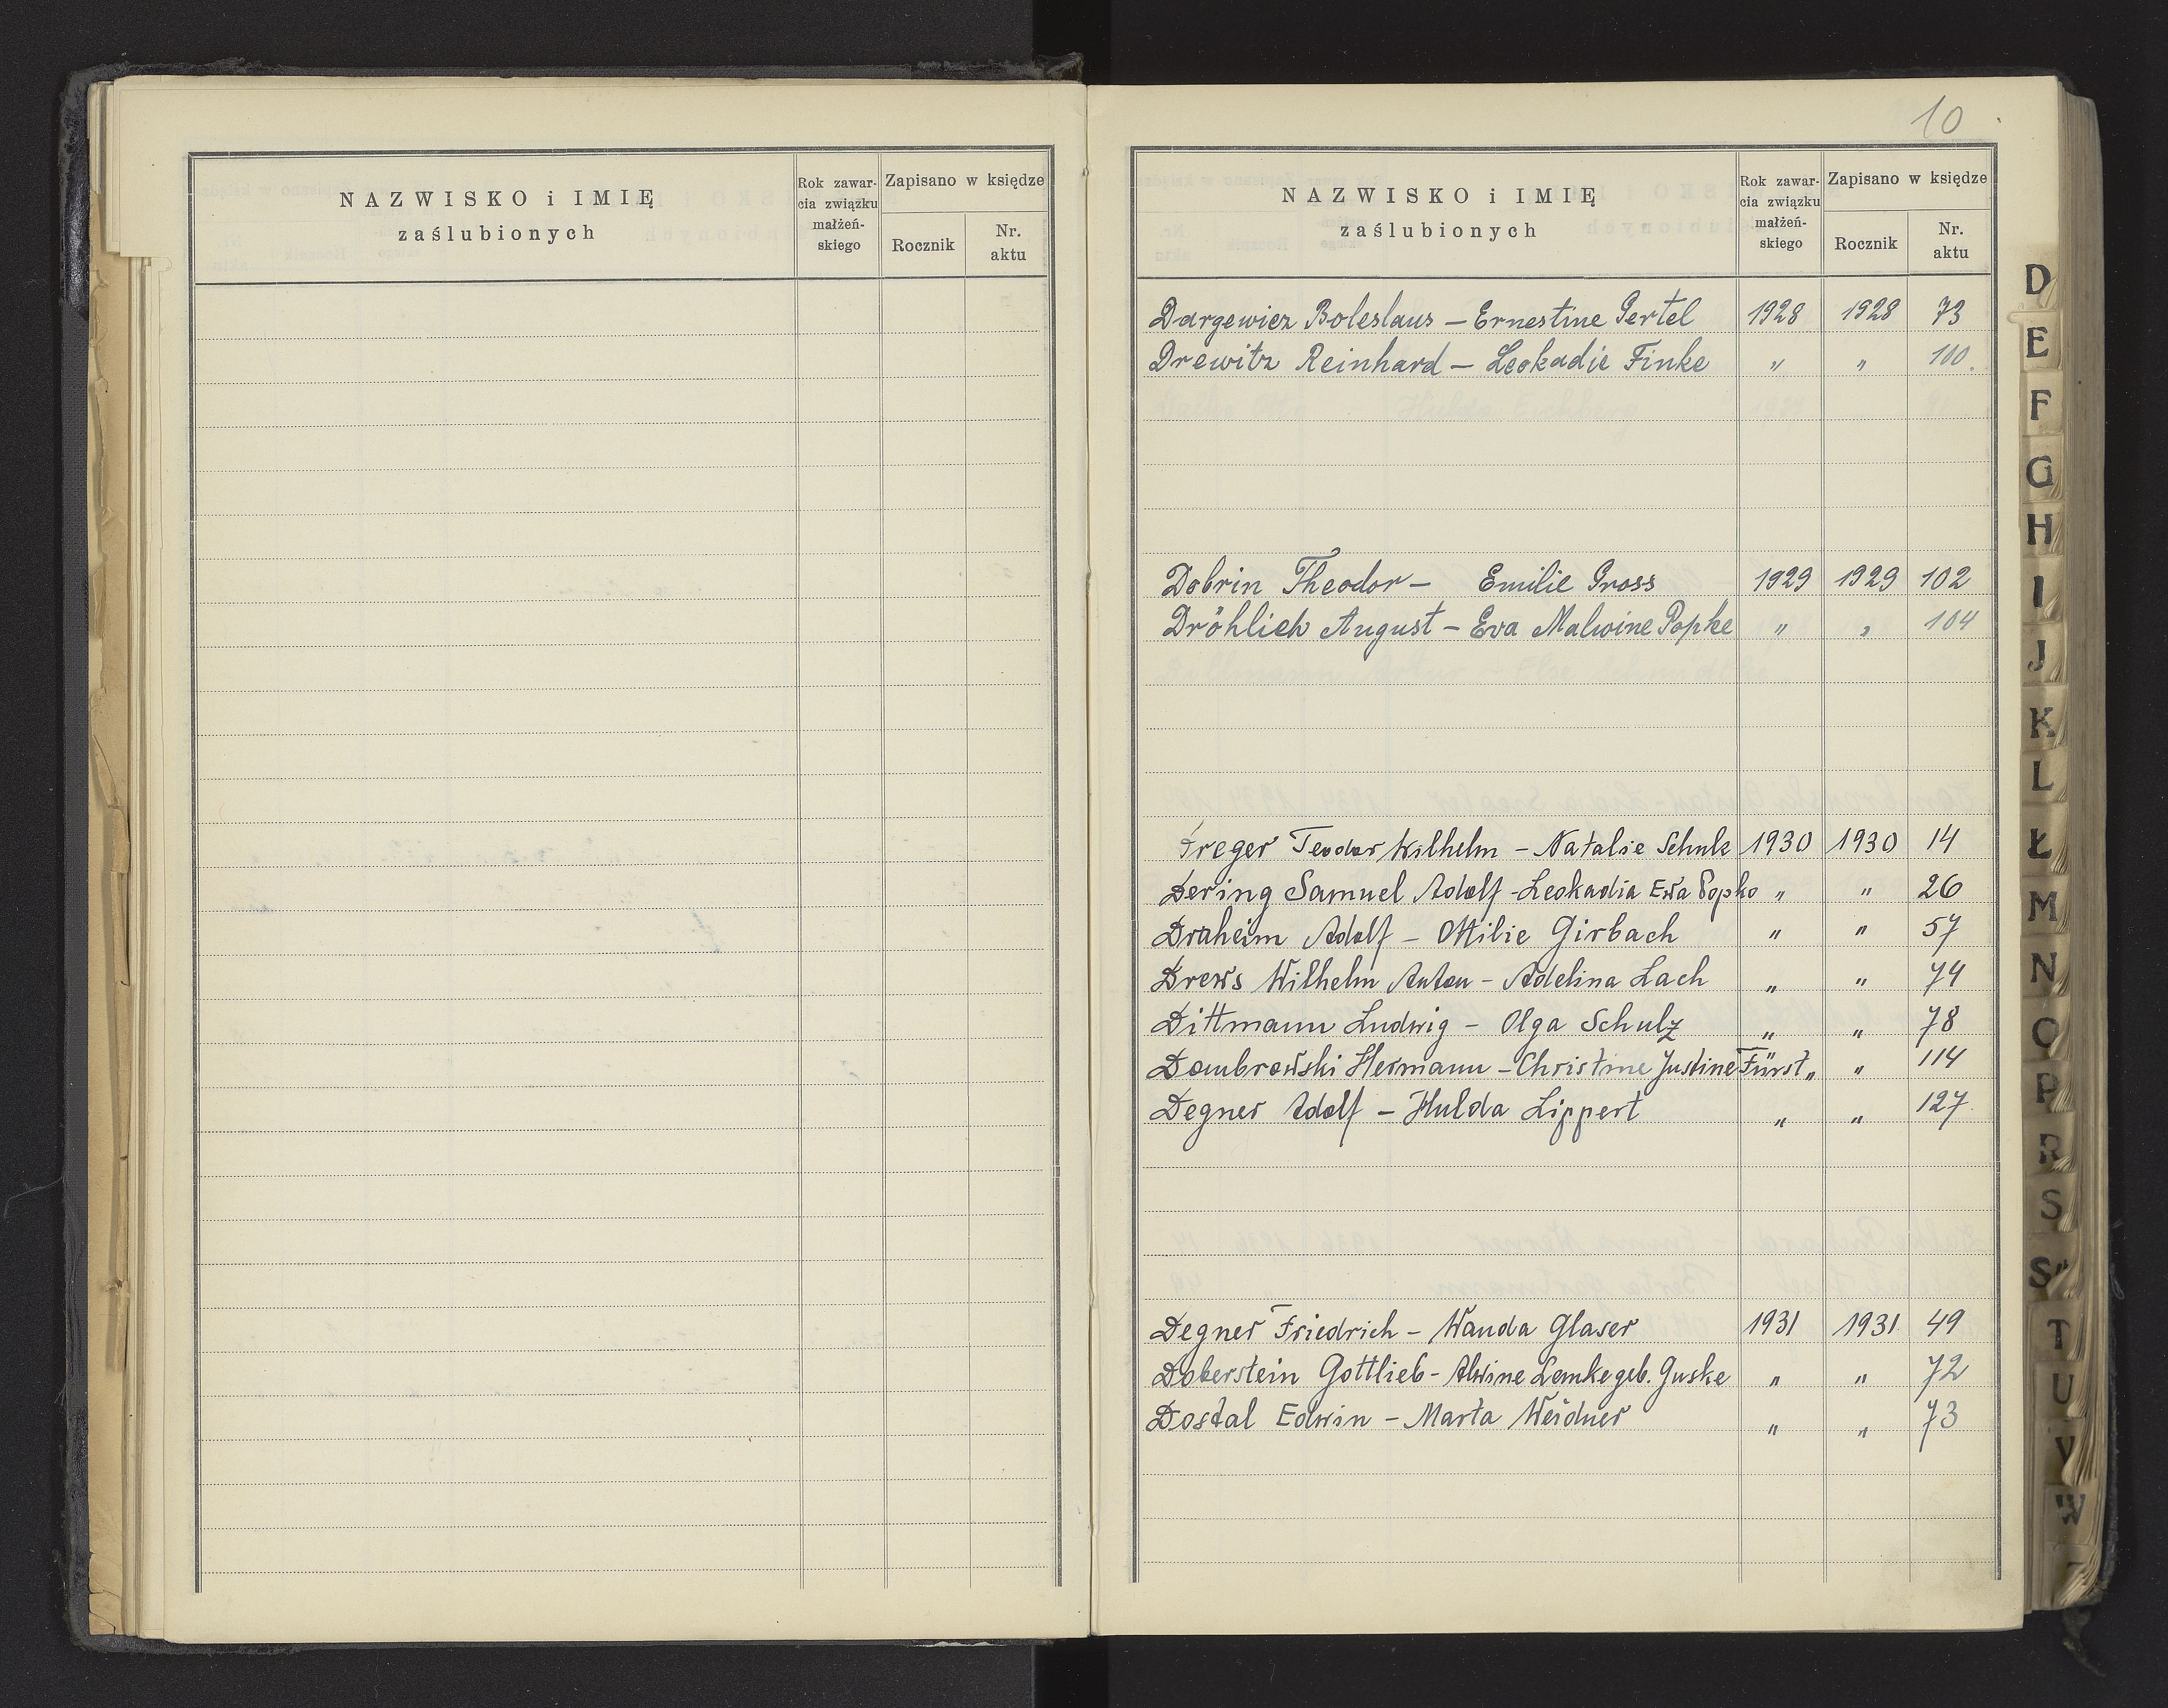 NAZWISKO i IMIĘ
zaślubionych
Rok zawar-
cia związku
małżeń-
skiego
Zapisano w księdze
Rocznik
Nr.
aktu
10
NAZWISKO i IMIĘ
zaślubionych
Rok zawar-
cia związku
małżeń-
skiego
Zapisano w księdze
Rocznik
Nr.
aktu
Dargewicz Boleslaus – Ernestine Gertel 1928 1928 73
Drewitz Reinhard – Leokadie Finke " " 100.
Dobrin Theodor – Emilie Gross 1929 1929 102
Dröhlich August – Eva Malwine Popke " " 104
Dreger Teodor Wilhelm – Natalie Schulz 1930 1930 14
Dering Samuel Adolf – Leokadia Ewa Popko " " 26
Draheim Adolf – Ottilie Girbach " " 57
Drews Wilhelm Anton – Adelina Lach " " 74
Dittmann Ludwig – Olga Schulz " " 78
Dombrowski Hermann – Christine Justine Fürst " " 114
Degner Adolf – Hulda Lippert " " 127
Degner Friedrich – Wanda Glaser 1931 1931 49
Doberstein Gottlieb – Alwine Lemke geb. Guske " " 72
Dostal Edwin – Marta Weidner " " 73
D
E
F
G
H
I
J
K
L
Ł
M
N
O
P
R
S
Ś
T
U
V
W